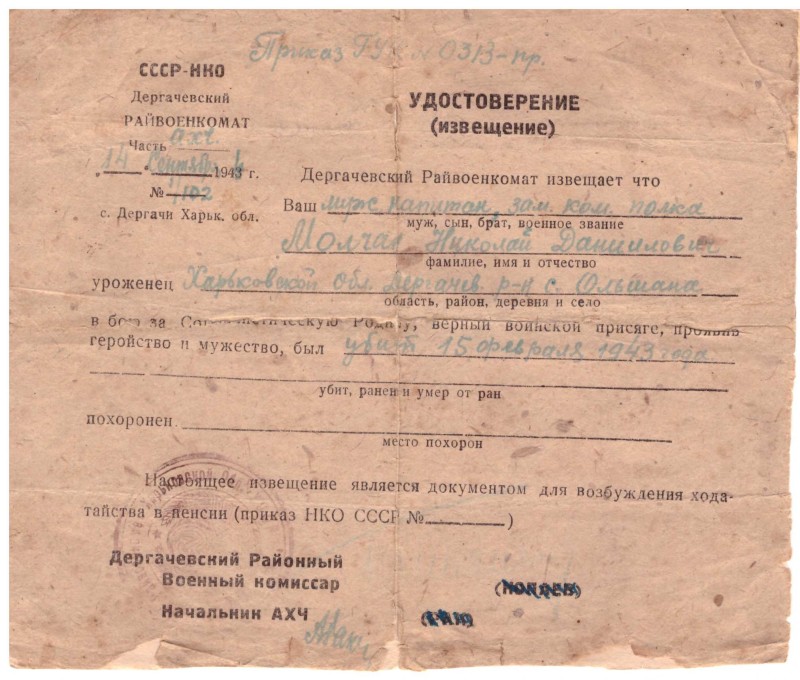 Приказ ГУК № 0313-пр.
СССР-НКО
Дергачевский
РАЙВОЕНКОМАТ
Часть АХЧ
14 Сентября 1943 г.
№ 1/102
с. Дергачи Харьк. обл.
УДОСТОВЕРЕНИЕ
(извещение)
Дергачевский Райвоенкомат извещает что
Ваш муж капитан, зам. ком. полка
муж, сын, брат, военное звание
Молчан Николай Даниилович
фамилие, имя и отчество
уроженец Харьковской обл. Дергачев. р-н с. Ольшана
область, район, деревня и село
в бою за Социалистическую Родину, верный воинской присяге, проявив
геройство и мужество, был убит 15 февраля 1943 года
убит, ранен и умер от ран
похоронен
место похорон
Настоящее извещение является документом для возбуждения хода-
тайства в пенсии (приказ НКО СССР № )
Дергачевский Районный
Военный комиссар
Начальник АХЧ